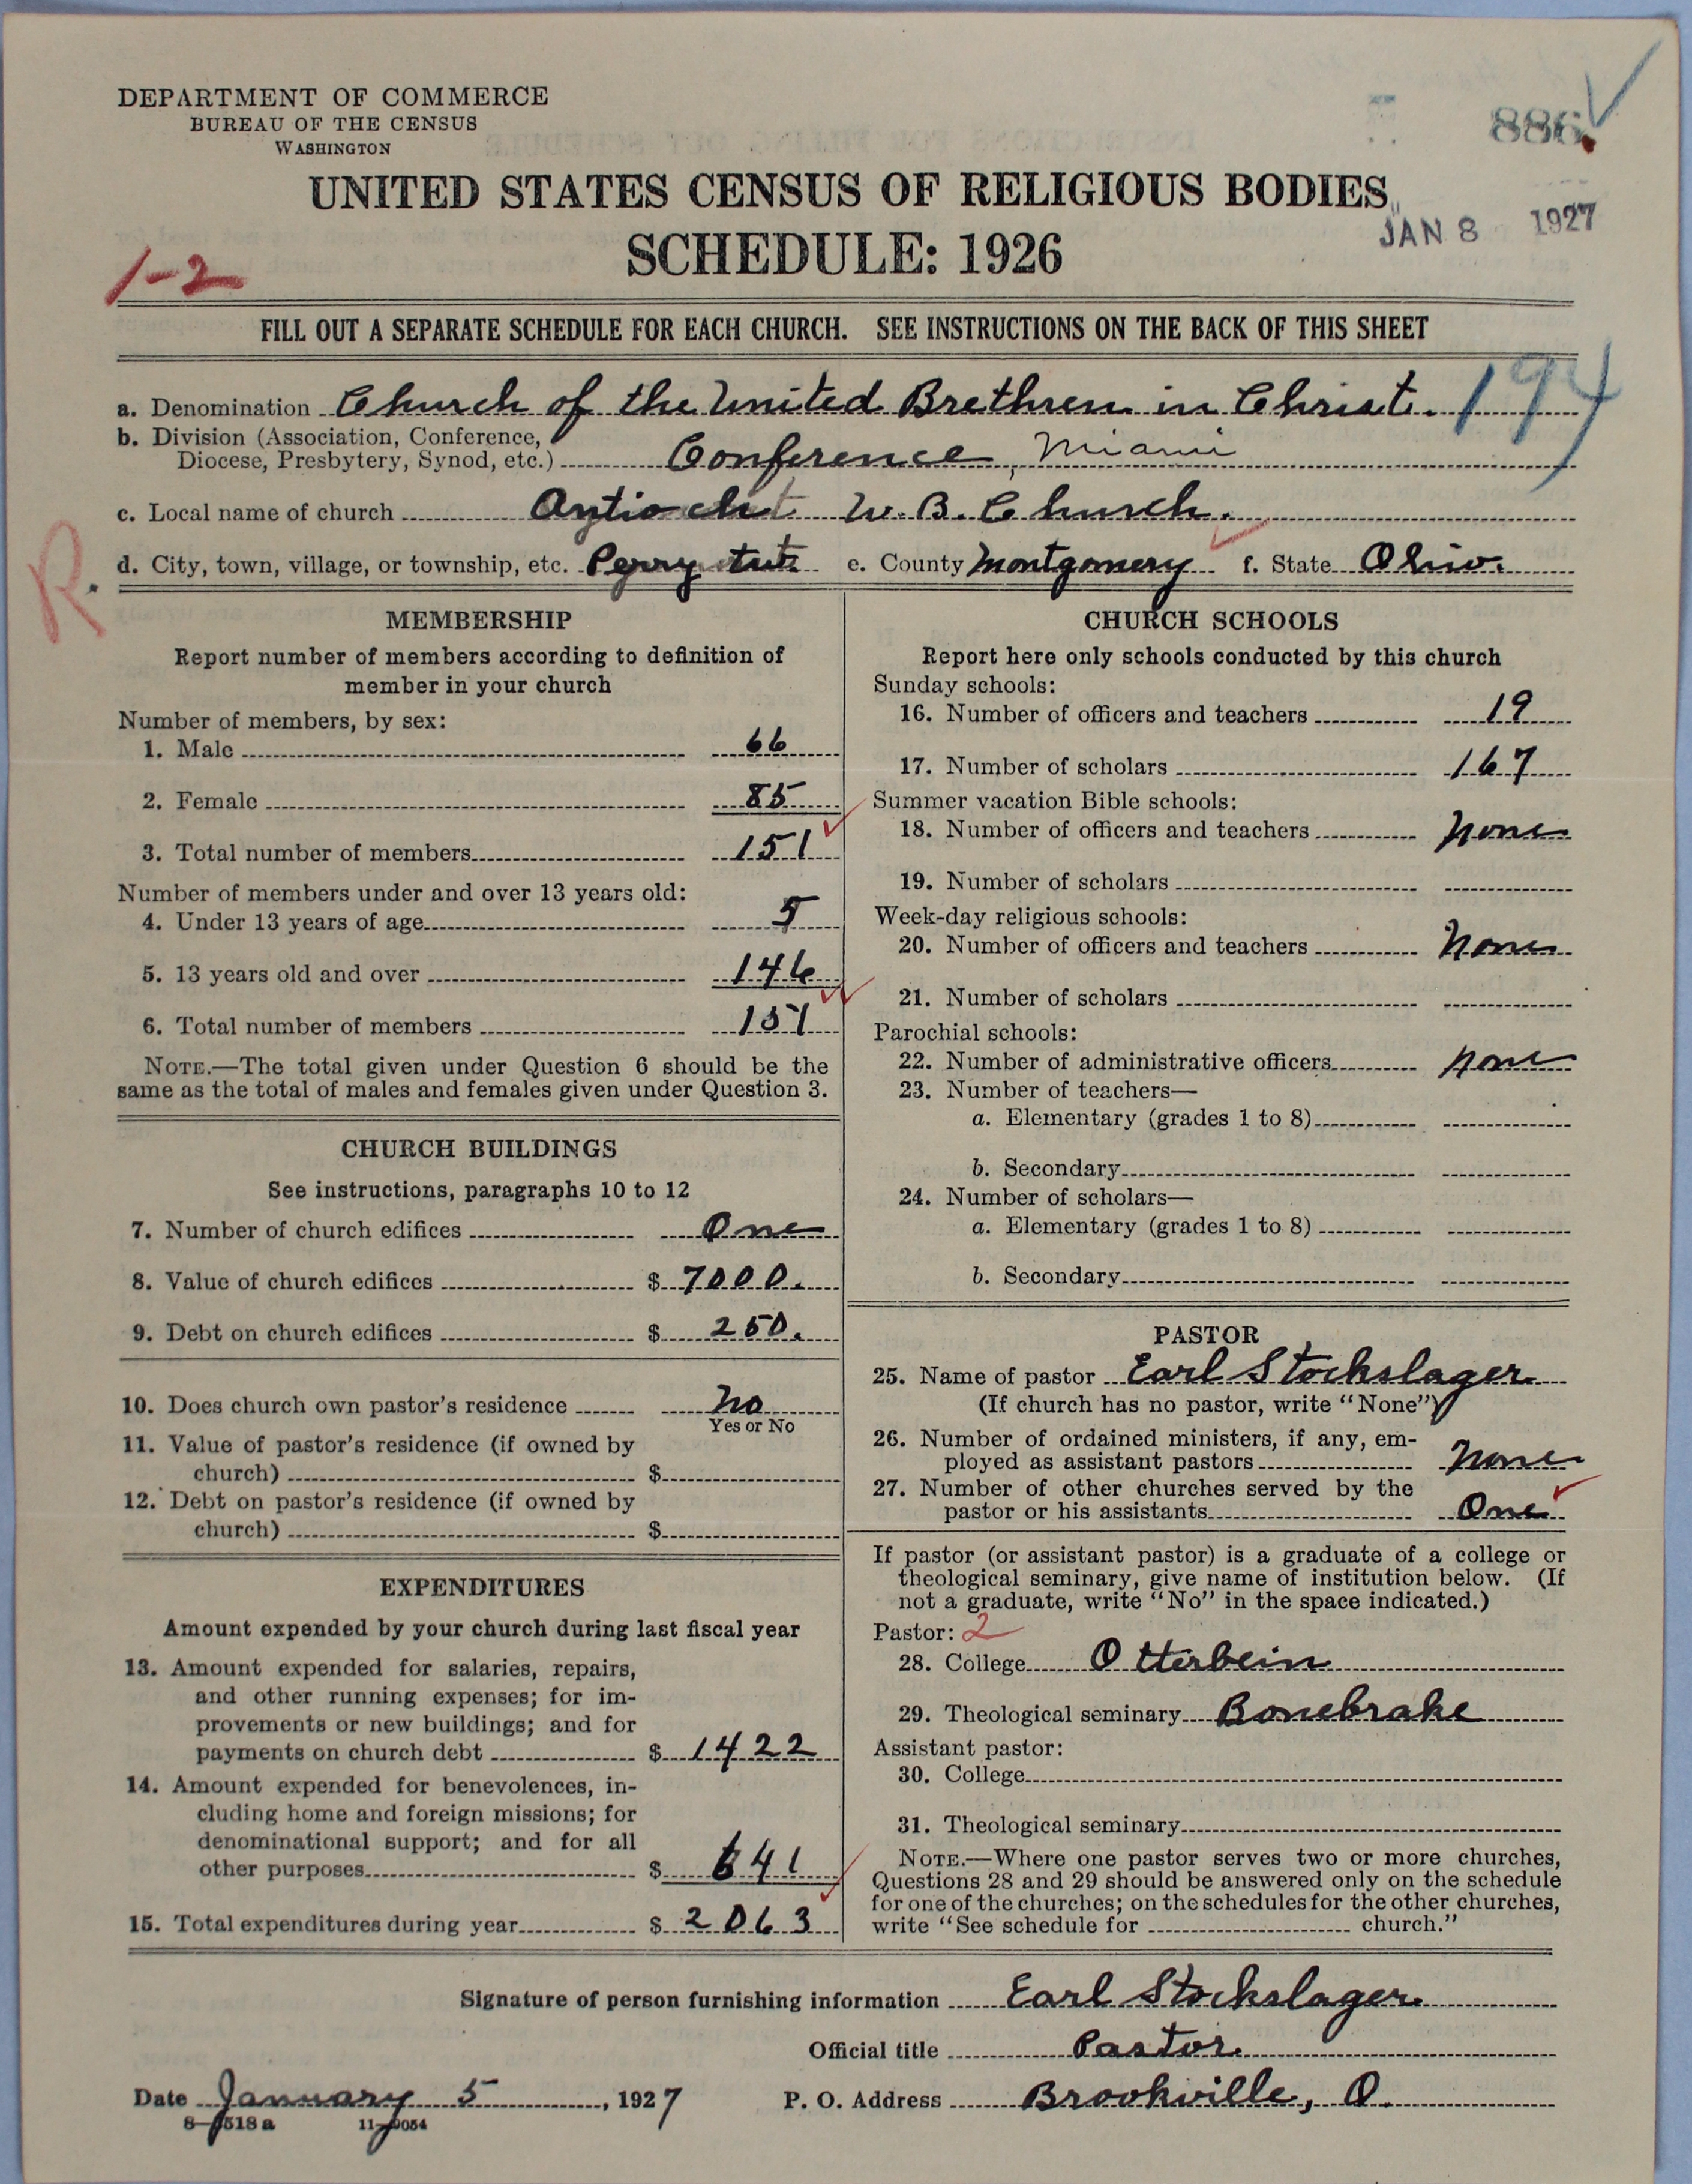 DEPARTMENT OF COMMERCE
BUREAU OF THE CENSUS
WASHINGTON
886
UNITED STATES CENSUS OF RELIGIOUS BODIES
JAN 8 1927
SCHEDULE: 1926
1-2
FILL OUT A SEPARATE SCHEDULE FOR EACH CHURCH. SEE INSTRUCTIONS ON THE BACK OF THIS SHEET
194
a. Denomination Church of the United Brethren in Christ.
b. Division (Association, Conference,
Diocese, Presbytery, Synod, etc.) Conference, Miami
c. Local name of church Antioch U. B. Church.
d. City, town, village, or township, etc. Perry e. County Montgomery f. State Ohio.
R.
MEMBERSHIP
Report number of members according to definition of
member in your church
Number of members, by sex:
1. Male 66
2. Female 85
3. Total number of members 151
Number of members under and over 13 years old:
4. Under 13 years of age 5
5. 13 years old and over 146
6. Total number of members 151
NOTE.—The total given under Question 6 should be the
same as the total of males and females given under Question 3.
CHURCH BUILDINGS
See instructions, paragraphs 10 to 12
7. Number of church edifices One
8. Value of church edifices $ 7000.
9. Debt on church edifices $ 250.
10. Does church own pastor's residence No
Yes or No
11. Value of pastor's residence (if owned by
church) $
12. Debt on pastor's residence (if owned by
church) $
EXPENDITURES
Amount expended by your church during last fiscal year
13. Amount expended for salaries, repairs,
and other running expenses; for im-
provements or new buildings; and for
payments on church debt $ 1422
14. Amount expended for benevolences, in-
cluding home and foreign missions; for
denominational support; and for all
other purposes $ 641
15. Total expenditures during year $ 2063
CHURCH SCHOOLS
Report here only schools conducted by this church
Sunday schools:
16. Number of officers and teachers 19
17. Number of scholars 167
Summer vacation Bible schools:
18. Number of officers and teachers None
19. Number of scholars
Week-day religious schools:
20. Number of officers and teachers None
21. Number of scholars
Parochial schools:
22. Number of administrative officers None
23. Number of teachers—
a. Elementary (grades 1 to 8)
b. Secondary
24. Number of scholars—
a. Elementary (grades 1 to 8)
b. Secondary
PASTOR
25. Name of pastor Earl Stockslager
(If church has no pastor, write "None")
26. Number of ordained ministers, if any, em-
ployed as assistant pastors None
27. Number of other churches served by the
pastor or his assistants One
If pastor (or assistant pastor) is a graduate of a college or
theological seminary, give name of institution below. (If
not a graduate, write "No" in the space indicated.)
Pastor: 2
28. College Otterbein
29. Theological seminary Bonebrake
Assistant pastor:
30. College
31. Theological seminary
NOTE.—Where one pastor serves two or more churches,
Questions 28 and 29 should be answered only on the schedule
for one of the churches; on the schedules for the other churches,
write "See schedule for church."
Signature of person furnishing information Earl Stockslager
Official title Pastor.
Date January 5, 1927 P. O. Address Brookville, O.
8-9518a 11-9054